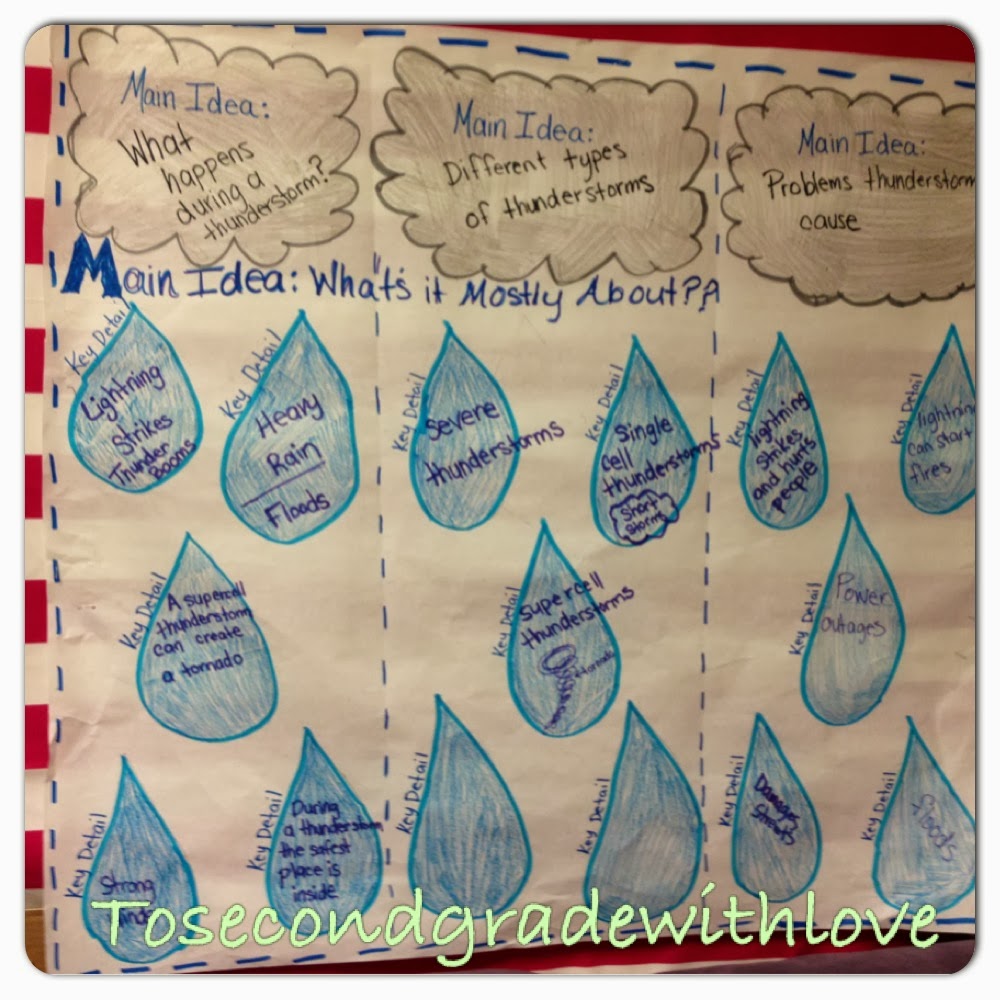 Main Idea:
What
happens
during a
thunderstorm?
Main Idea:
Different types
of thunderstorms
Main Idea:
Problems thunderstorm
cause
Main Idea: What's it Mostly About?
Key Detail
Lightning
Strikes
Thunder
Booms
Key Detail
Heavy
Rain
Floods
Key Detail
A supercell
thunderstorm
can create
a tornado
Key Detail
Strong
Key Detail
During
a thunderstorm
the safest
place is
inside
Key Detail
Severe
thunderstorms
Key Detail
Single
cell
thunderstorms
Short
Storms
Key Detail
Supercell
thunderstorms
tornado
Key Detail
Key Detail
Key Detail
lightning
strikes
and hurts
people
Key Detail
lightning
can start
fires
Key Detail
Power
outages
Key Detail
Damages
Key Detail
floods
Tosecondgradewithlove